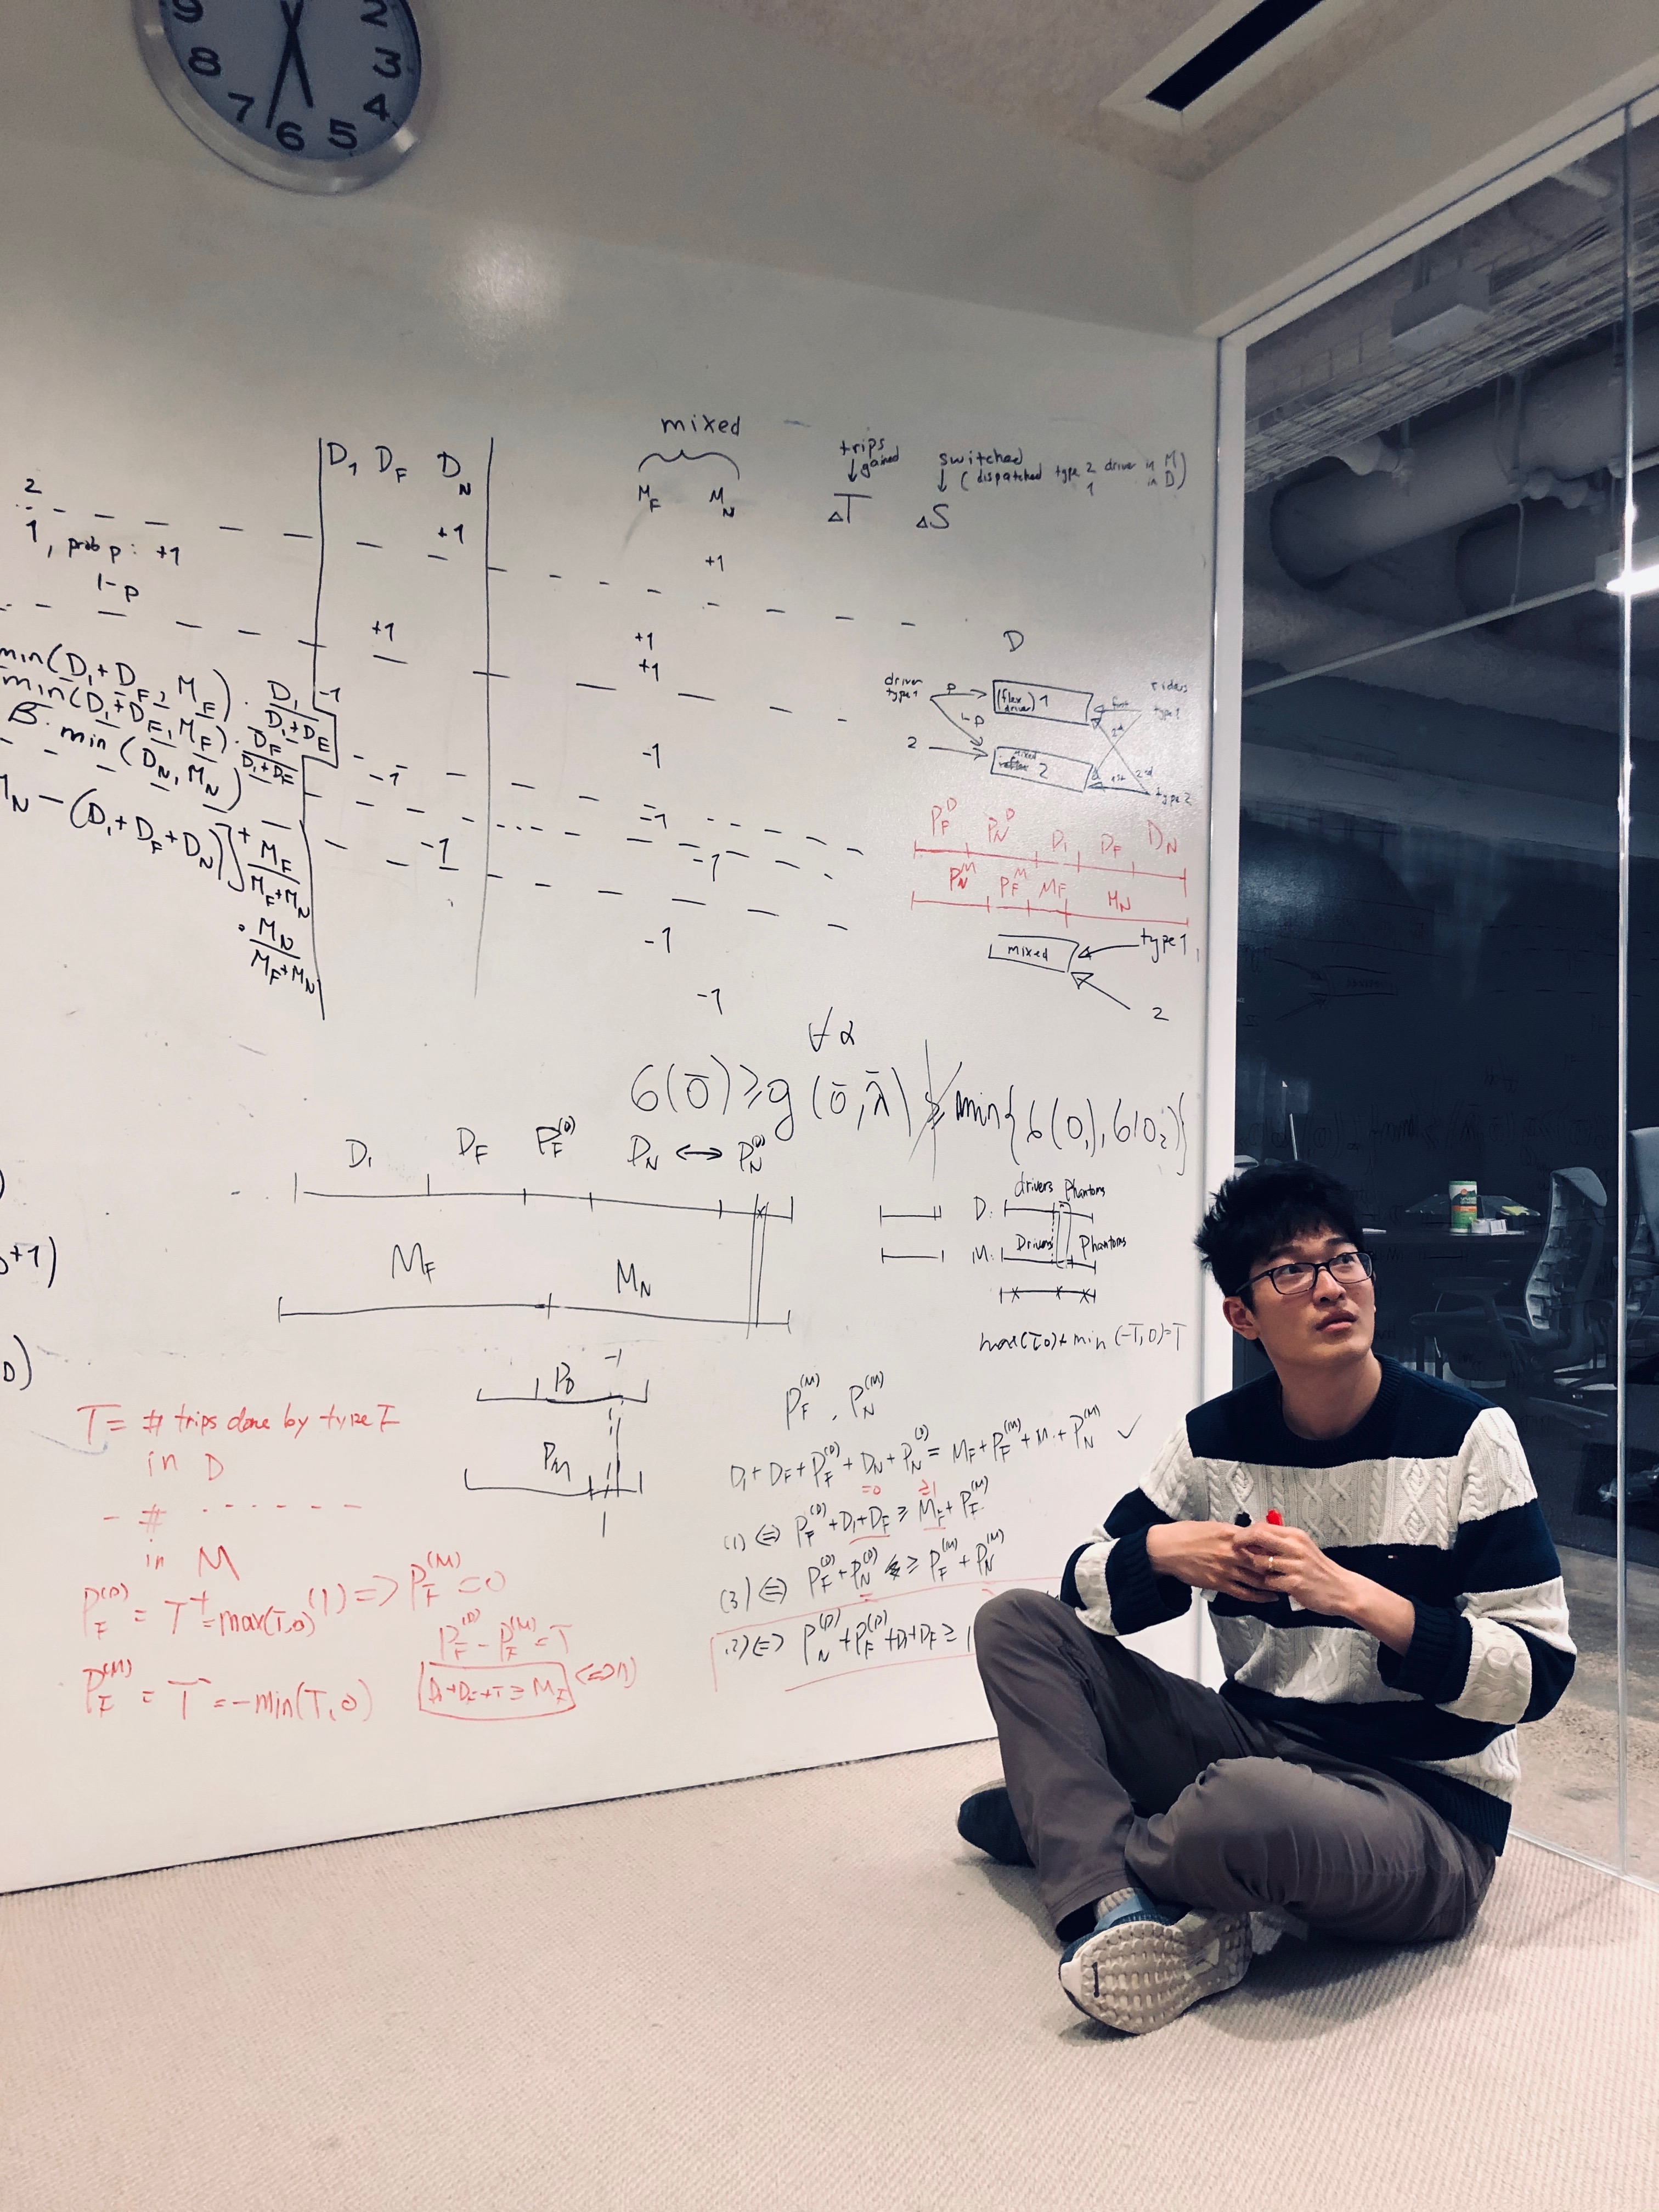 9 2
8 3
7 6 5 4
mixed
D₁ D_F D_N
M_F M_N
trips gained
↓
ΔT
switched
↓ (dispatched type 2 driver in M
1 in D)
ΔS
2
+1
1, prob p: +1
+1
1-p
+1 +1
+1
min(D₁+D_F, M_F) · D₁/(D₁+D_F) -1
-1
min(D₁+D_F, M_F) · D_F/(D₁+D_F) -1
-1
B: min(D_N, M_N)
-1
-1
M_N - (D₁+D_F+D_N)]⁺ M_F/(M_F+M_N)
-1
· M_N/(M_F+M_N)
-1
D
driver type 1
p
(flex driver) 1
first
riders
type 1
1-p
2nd
2
mixed
2
1st
2nd
type 2
P_F^D P_N^D D₁ D_F D_N
P_N^M P_F^M M_F M_N
mixed
type 1
2
∀α
G(ō) ≥ g(ō, λ̄) ≥ min{G(O₁), G(O₂)}
D₁ D_F P_F^(D) D_N ↔ P_N^(D)
M_F M_N
drivers Phantoms
D:
M: Drivers Phantoms
max(T,0)+min(-T,0)=T
+1)
D)
-1
P_D
P_M
1
T = # trips done by type F
in D
- # - - - - - -
in M
P_F^(D) = T⁺ = max(T,0)
(1) => P_F^(M) = 0
P_F^(D) - P_F^(M) = T
P_F^(M) = T⁻ = -min(T,0)
D₁+D_F+T ≥ M_F (<=>1)
P_F^(M), P_N^(M)
D₁+D_F+P_F^(D)+D_N+P_N^(D) = M_F+P_F^(M)+M.+P_N^(M) ✓
=0 ≥1
(1) <=> P_F^(D)+D₁+D_F ≥ M_F+P_F^(M)
(3) <=> P_F^(D)+P_N^(D) ≥ P_F^(M)+P_N^(M)
(2) <=> P_N^(D)+P_F^(D)+D₁+D_F ≥ 1